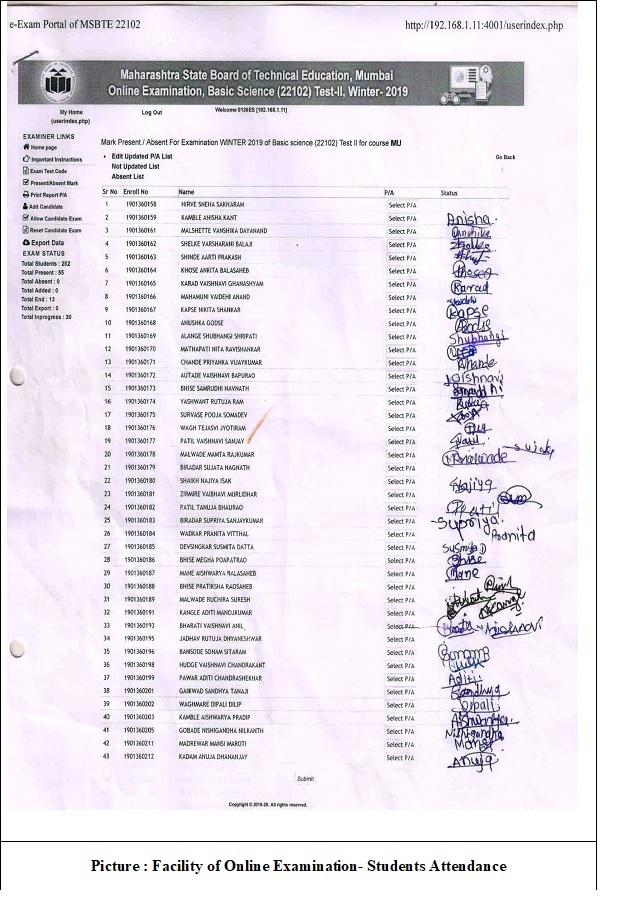 e-Exam Portal of MSBTE 22102 http://192.168.1.11:4001/userindex.php
Maharashtra State Board of Technical Education, Mumbai
Online Examination, Basic Science (22102) Test-II, Winter- 2019
My Home Log Out Welcome 0136ES [192.168.1.11]
(userindex.php)
EXAMINER LINKS
Home page
Important Instructions
Exam Test Code
Present/Absent Mark
Print Report P/A
Add Candidate
Allow Candidate Exam
Reset Candidate Exam
Export Data
EXAM STATUS
Total Students : 252
Total Present : 55
Total Absent : 0
Total Added : 0
Total End : 13
Total Export : 0
Total Inprogress : 30
Mark Present / Absent For Examination WINTER 2019 of Basic science (22102) Test II for course MU
Edit Updated P/A List Go Back
Not Updated List
Absent List
Sr No Enroll No Name P/A Status
1 1901360158 HIRVE SNEHA SAKHARAM Select P/A
2 1901360159 KAMBLE ANISHA KANT Select P/A Anisha
3 1901360161 MALSHETTE VANSHIKA DAYANAND Select P/A
4 1901360162 SHELKE VARSHARANI BALAJI Select P/A
5 1901360163 SHINDE AARTI PRAKASH Select P/A
6 1901360164 KHOSE ANKITA BALASAHEB Select P/A
7 1901360165 KARAD VAISHNAVI GHANASHYAM Select P/A Karad
8 1901360166 MAHAMUNI VAIDEHI ANAND Select P/A
9 1901360167 KAPSE NIKITA SHANKAR Select P/A Kapse
10 1901360168 ANUSHKA GODSE Select P/A
11 1901360169 ALANGE SHUBHANGI SHRIPATI Select P/A Shubhangi
12 1901360170 MATHAPATI NITA RAVISHANKAR Select P/A
13 1901360171 CHANDE PRIYANKA VIJAYKUMAR Select P/A
14 1901360172 AUTADE VAISHNAVI BAPURAO Select P/A Vaishnavi
15 1901360173 BHISE SAMRUDHI NAVNATH Select P/A
16 1901360174 YASHWANT RUTUJA RAM Select P/A
17 1901360175 SURVASE POOJA SOMADEV Select P/A
18 1901360176 WAGH TEJASVI JYOTIRAM Select P/A
19 1901360177 PATIL VAISHNAVI SANJAY Select P/A
20 1901360178 MALWADE MAMTA RAJKUMAR Select P/A
21 1901360179 BIRADAR SUJATA NAGNATH Select P/A
22 1901360180 SHAIKH NAJIYA ISAK Select P/A
23 1901360181 ZIRMIRE VAIBHAVI MURLIDHAR Select P/A
24 1901360182 PATIL TANUJA BHAURAO Select P/A
25 1901360183 BIRADAR SUPRIYA SANJAYKUMAR Select P/A Supriya
26 1901360184 WADKAR PRANITA VITTHAL Select P/A Pranita
27 1901360185 DEVSINGKAR SUSMITA DATTA Select P/A Susmita D
28 1901360186 BHISE MEGHA POAPATRAO Select P/A Bhise
29 1901360187 MANE AISHWARYA BALASAHEB Select P/A Mane
30 1901360188 BHISE PRATIKSHA RAOSAHEB Select P/A
31 1901360189 MALWADE RUCHIRA SURESH Select P/A
32 1901360191 KANGLE ADITI MANOJKUMAR Select P/A
33 1901360193 BHARATI VAISHNAVI ANIL Select P/A
34 1901360195 JADHAV RUTUJA DNYANESHWAR Select P/A
35 1901360196 BANSODE SONAM SITARAM Select P/A
36 1901360198 HUDGE VAISHNAVI CHANDRAKANT Select P/A
37 1901360199 PAWAR ADITI CHANDRASHEKHAR Select P/A Aditi
38 1901360201 GAIKWAD SANDHYA TANAJI Select P/A Sandhya
39 1901360202 WAGHMARE DIPALI DILIP Select P/A Dipali
40 1901360203 KAMBLE AISHWARYA PRADIP Select P/A
41 1901360205 GOBADE NISHIGANDHA NILKANTH Select P/A Nishigandha
42 1901360211 MADREWAR MANSI MAROTI Select P/A Mansi
43 1901360212 KADAM ANUJA DHANANJAY Select P/A Anuja
Submit
Copyright © 2019-20. All rights reserved.
Picture : Facility of Online Examination- Students Attendance